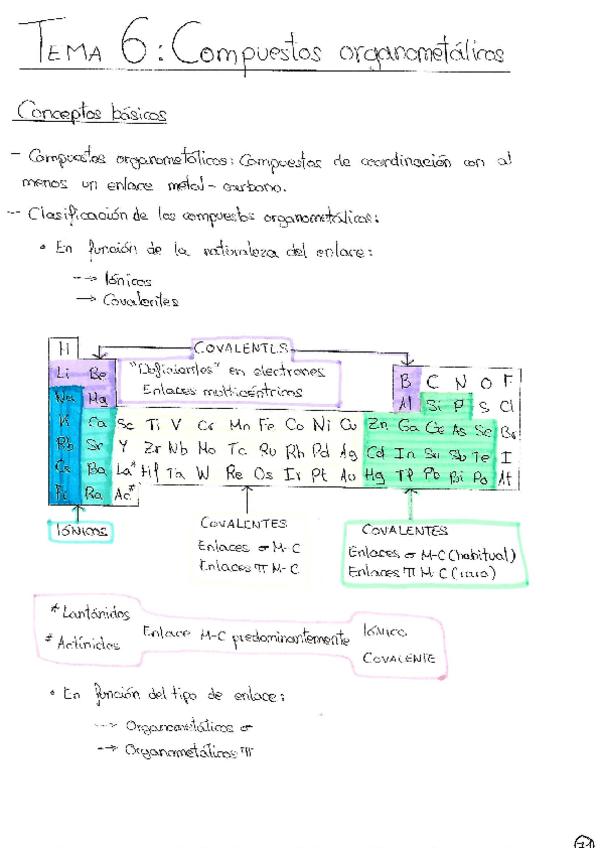 TEMA 6: Compuestos organometálicos
Conceptos básicos
- Compuestos organometálicos: Compuestos de coordinación con al
menos un enlace metal-carbono.
-- Clasificación de los compuestos organometálicos:
• En función de la naturaleza del enlace:
--→ Iónicos
→ Covalentes
H COVALENTES
Li Be "Deficientes" en electrones B C N O F
Na Mg Enlaces multicéntricos Al Si P S Cl
K Ca Sc Ti V Cr Mn Fe Co Ni Cu Zn Ga Ge As Se Br
Rb Sr Y Zr Nb Mo Tc Ru Rh Pd Ag Cd In Sn Sb Te I
Cs Ba La* Hf Ta W Re Os Ir Pt Au Hg Tl Pb Bi Po At
Fr Ra Ac*
IÓNICOS
COVALENTES
Enlaces σ M-C
Enlaces π M-C
COVALENTES
Enlaces σ M-C (habitual)
Enlaces π M-C (raro)
* Lantánidos
* Actínidos
Enlace M-C predominantemente
IÓNICO
COVALENTE
• En función del tipo de enlace:
--→ Organometálicos σ
--→ Organometálicos π
71